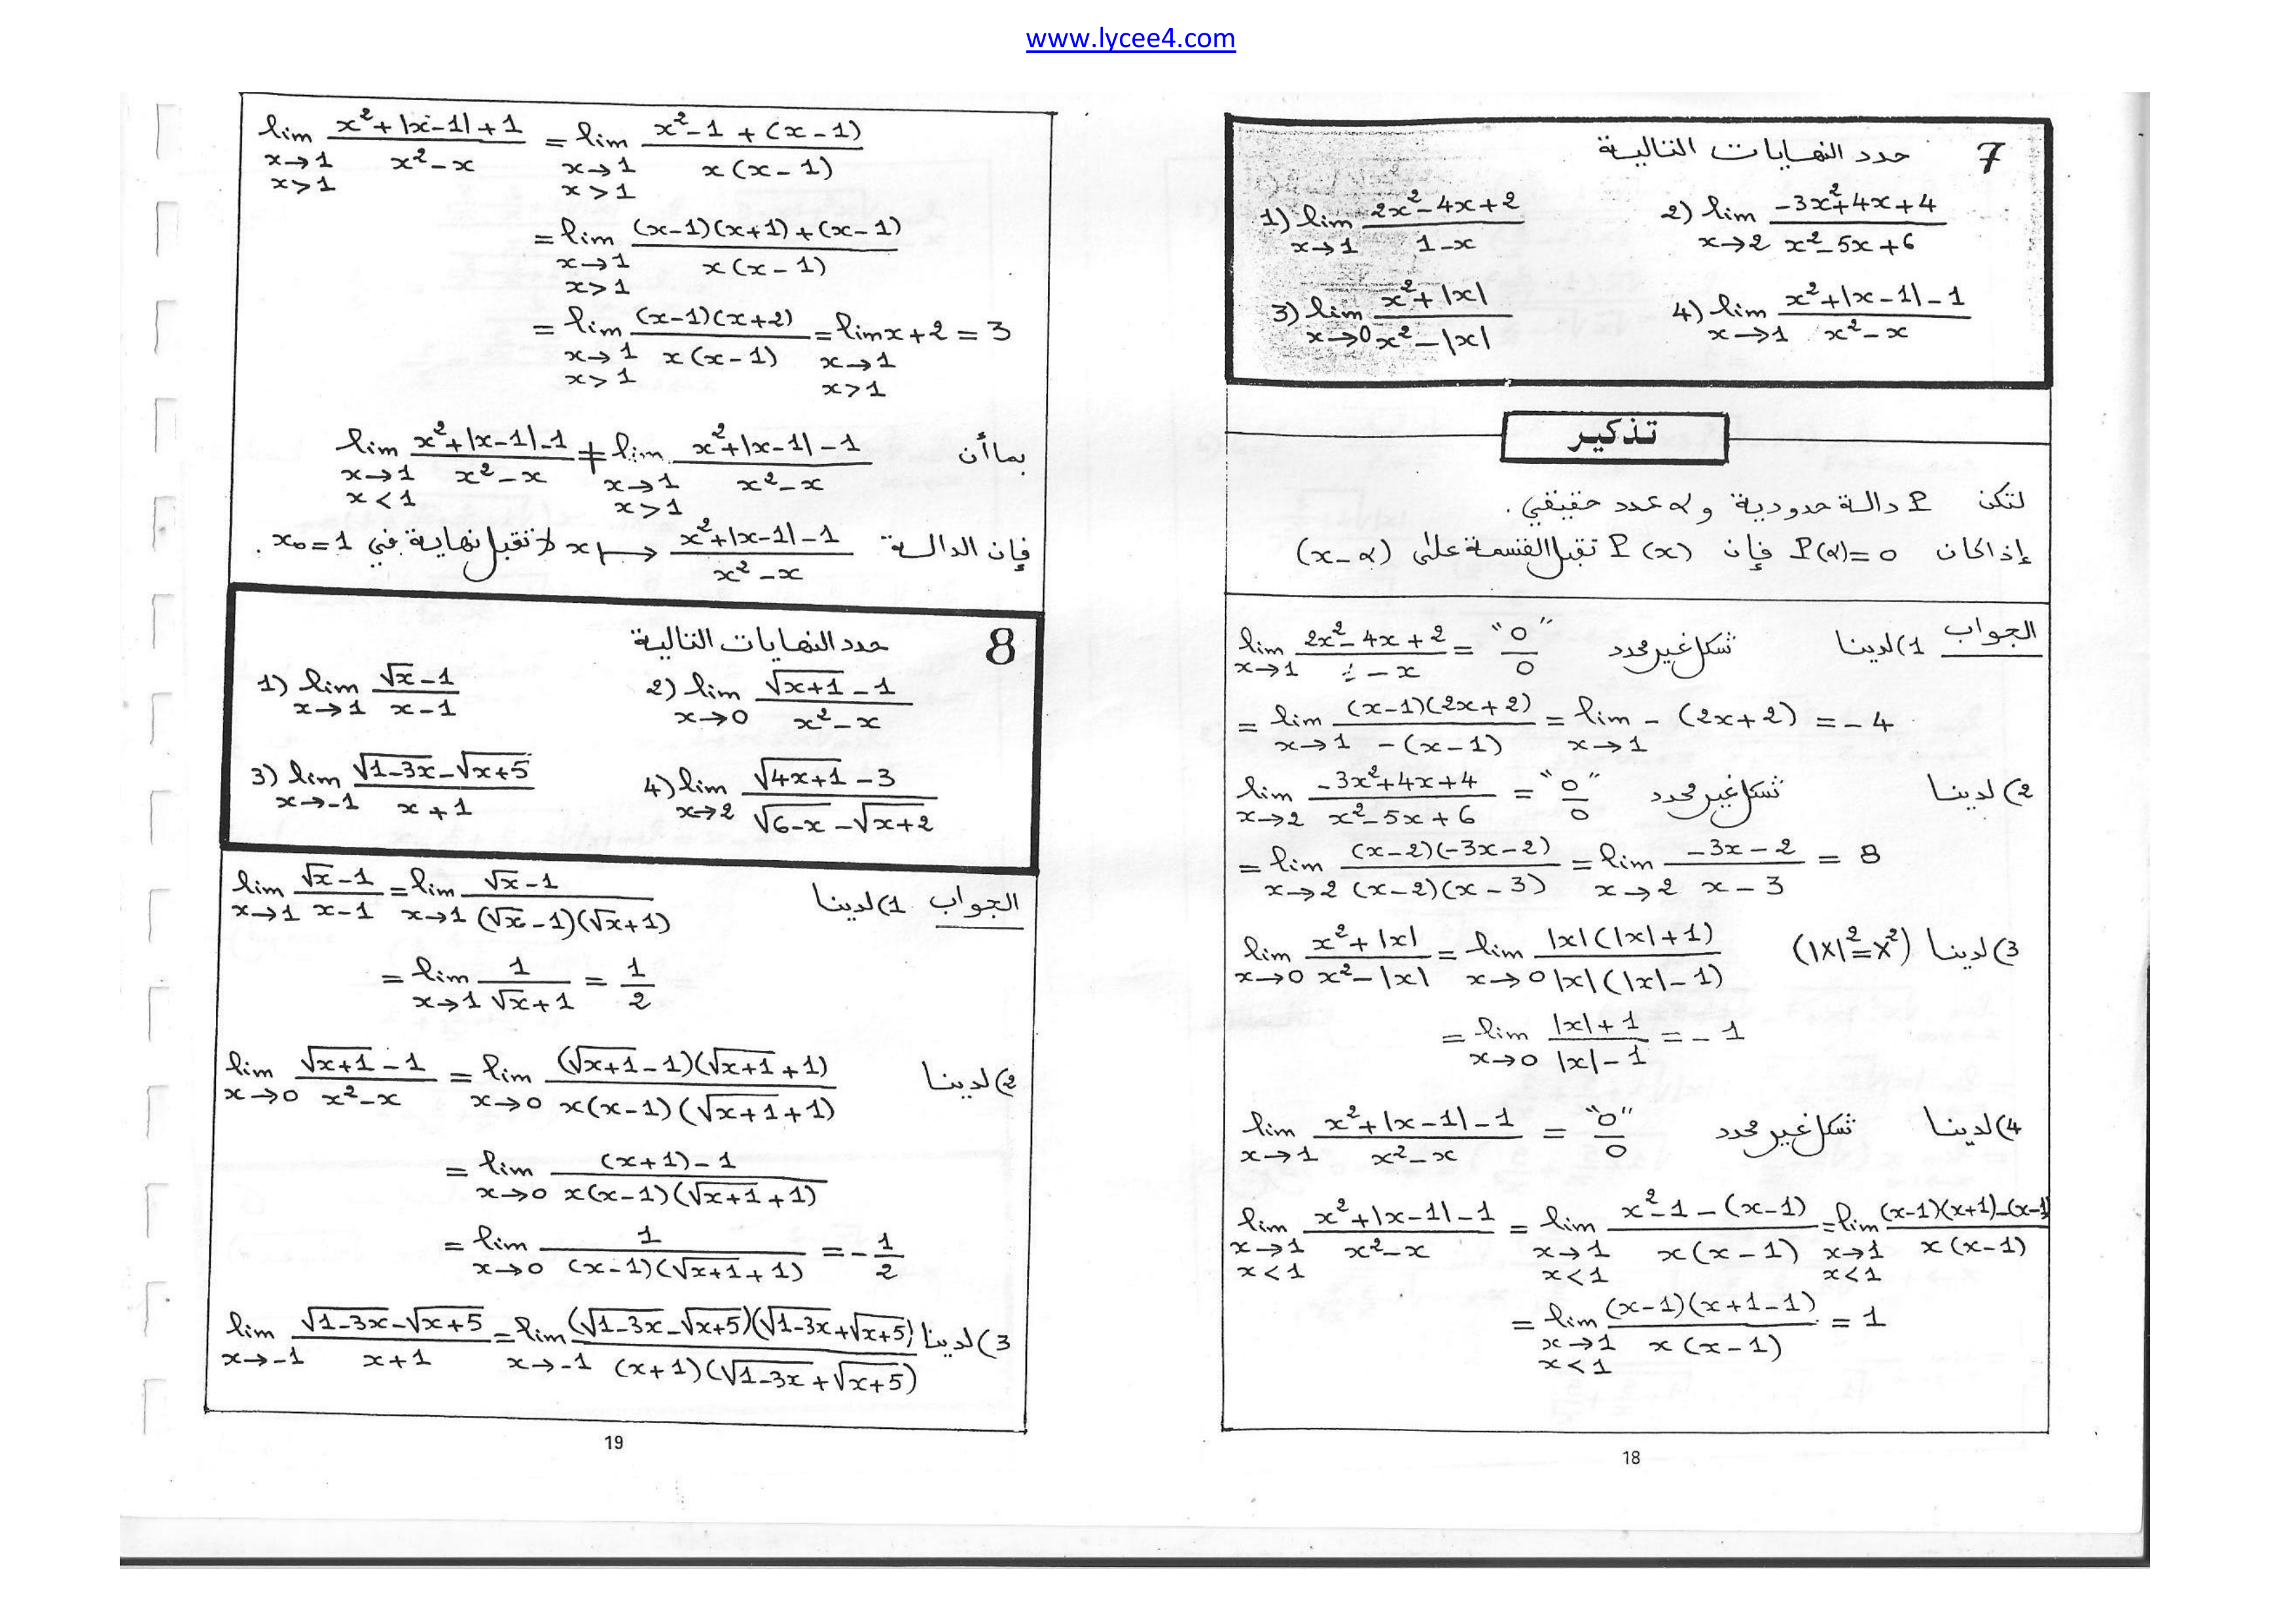 www.lycee4.com
7 حدد النهايات التالية
1) lim x→1 (2x²-4x+2)/(1-x)
2) lim x→2 (-3x²+4x+4)/(x²-5x+6)
3) lim x→0 (x²+|x|)/(x²-|x|)
4) lim x→1 (x²+|x-1|-1)/(x²-x)
تذكير
لتكن P دالة حدودية و α عدد حقيقي.
إذا كان P(α)=0 فإن P(x) تقبل القسمة على (x-α)
الجواب 1) لدينا lim x→1 (2x²-4x+2)/(1-x) = "0/0" شكل غير محدد
= lim x→1 (x-1)(2x+2)/-(x-1) = lim x→1 -(2x+2) = -4
2) لدينا lim x→2 (-3x²+4x+4)/(x²-5x+6) = "0/0" شكل غير محدد
= lim x→2 (x-2)(-3x-2)/(x-2)(x-3) = lim x→2 (-3x-2)/(x-3) = 8
3) لدينا (|x|²=x²) lim x→0 (x²+|x|)/(x²-|x|) = lim x→0 |x|(|x|+1)/|x|(|x|-1)
= lim x→0 (|x|+1)/(|x|-1) = -1
4) لدينا lim x→1 (x²+|x-1|-1)/(x²-x) = "0/0" شكل غير محدد
lim x→1 x<1 (x²+|x-1|-1)/(x²-x) = lim x→1 x<1 (x²-1-(x-1))/x(x-1) = lim x→1 x<1 ((x-1)(x+1)-(x-1))/x(x-1)
= lim x→1 x<1 (x-1)(x+1-1)/x(x-1) = 1
18
lim x→1 x>1 (x²+|x-1|+1)/(x²-x) = lim x→1 x>1 (x²-1+(x-1))/x(x-1)
= lim x→1 x>1 ((x-1)(x+1)+(x-1))/x(x-1)
= lim x→1 x>1 (x-1)(x+2)/x(x-1) = lim x→1 x>1 x+2 = 3
بما أن lim x→1 x<1 (x²+|x-1|-1)/(x²-x) ≠ lim x→1 x>1 (x²+|x-1|-1)/(x²-x)
فإن الدالة x ↦ (x²+|x-1|-1)/(x²-x) لا تقبل نهاية في x₀=1.
8 حدد النهايات التالية
1) lim x→1 (√x-1)/(x-1)
2) lim x→0 (√(x+1)-1)/(x²-x)
3) lim x→-1 (√(1-3x)-√(x+5))/(x+1)
4) lim x→2 (√(4x+1)-3)/(√(6-x)-√(x+2))
الجواب 1) لدينا lim x→1 (√x-1)/(x-1) = lim x→1 (√x-1)/(√x-1)(√x+1)
= lim x→1 1/(√x+1) = 1/2
2) لدينا lim x→0 (√(x+1)-1)/(x²-x) = lim x→0 (√(x+1)-1)(√(x+1)+1)/x(x-1)(√(x+1)+1)
= lim x→0 ((x+1)-1)/x(x-1)(√(x+1)+1)
= lim x→0 1/(x-1)(√(x+1)+1) = -1/2
3) لدينا lim x→-1 (√(1-3x)-√(x+5))/(x+1) = lim x→-1 (√(1-3x)-√(x+5))(√(1-3x)+√(x+5))/(x+1)(√(1-3x)+√(x+5))
19